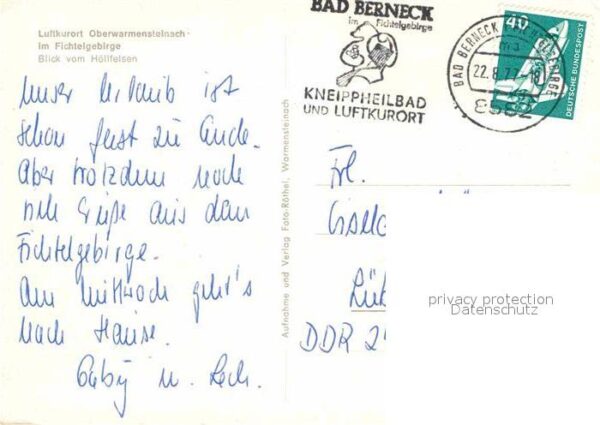 Luftkurort Oberwarmensteinach
im Fichtelgebirge
Blick vom Höllfelsen
Unser Urlaub ist
schon fast zu Ende.
Aber trotzdem noch
viele Grüße aus dem
Fichtelgebirge.
Am Mittwoch geht's
nach Hause.
Gaby u.
Aufnahme und Verlag Foto-Röthel, Warmensteinach
BAD BERNECK
im Fichtelgebirge
KNEIPPHEILBAD
UND LUFTKURORT
BAD BERNECK
22.8.77
8582
40
DEUTSCHE BUNDESPOST
Frl.
Gisela
DDR 2
privacy protection
Datenschutz